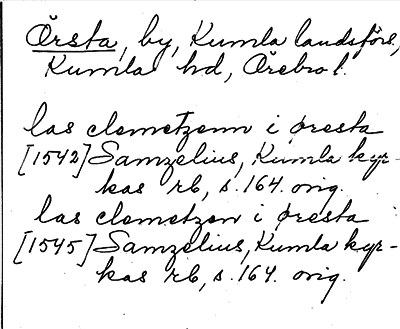 Örsta, by, Kumla landsförs.,
Kumla hd, Örebro l.
las clemetzenn i øresta
[1542] Samzelius, Kumla kyr-
kas rb, s. 164. orig.
las clemetzen i øresta
[1545] Samzelius, Kumla kyr-
kas rb, s. 164. orig.